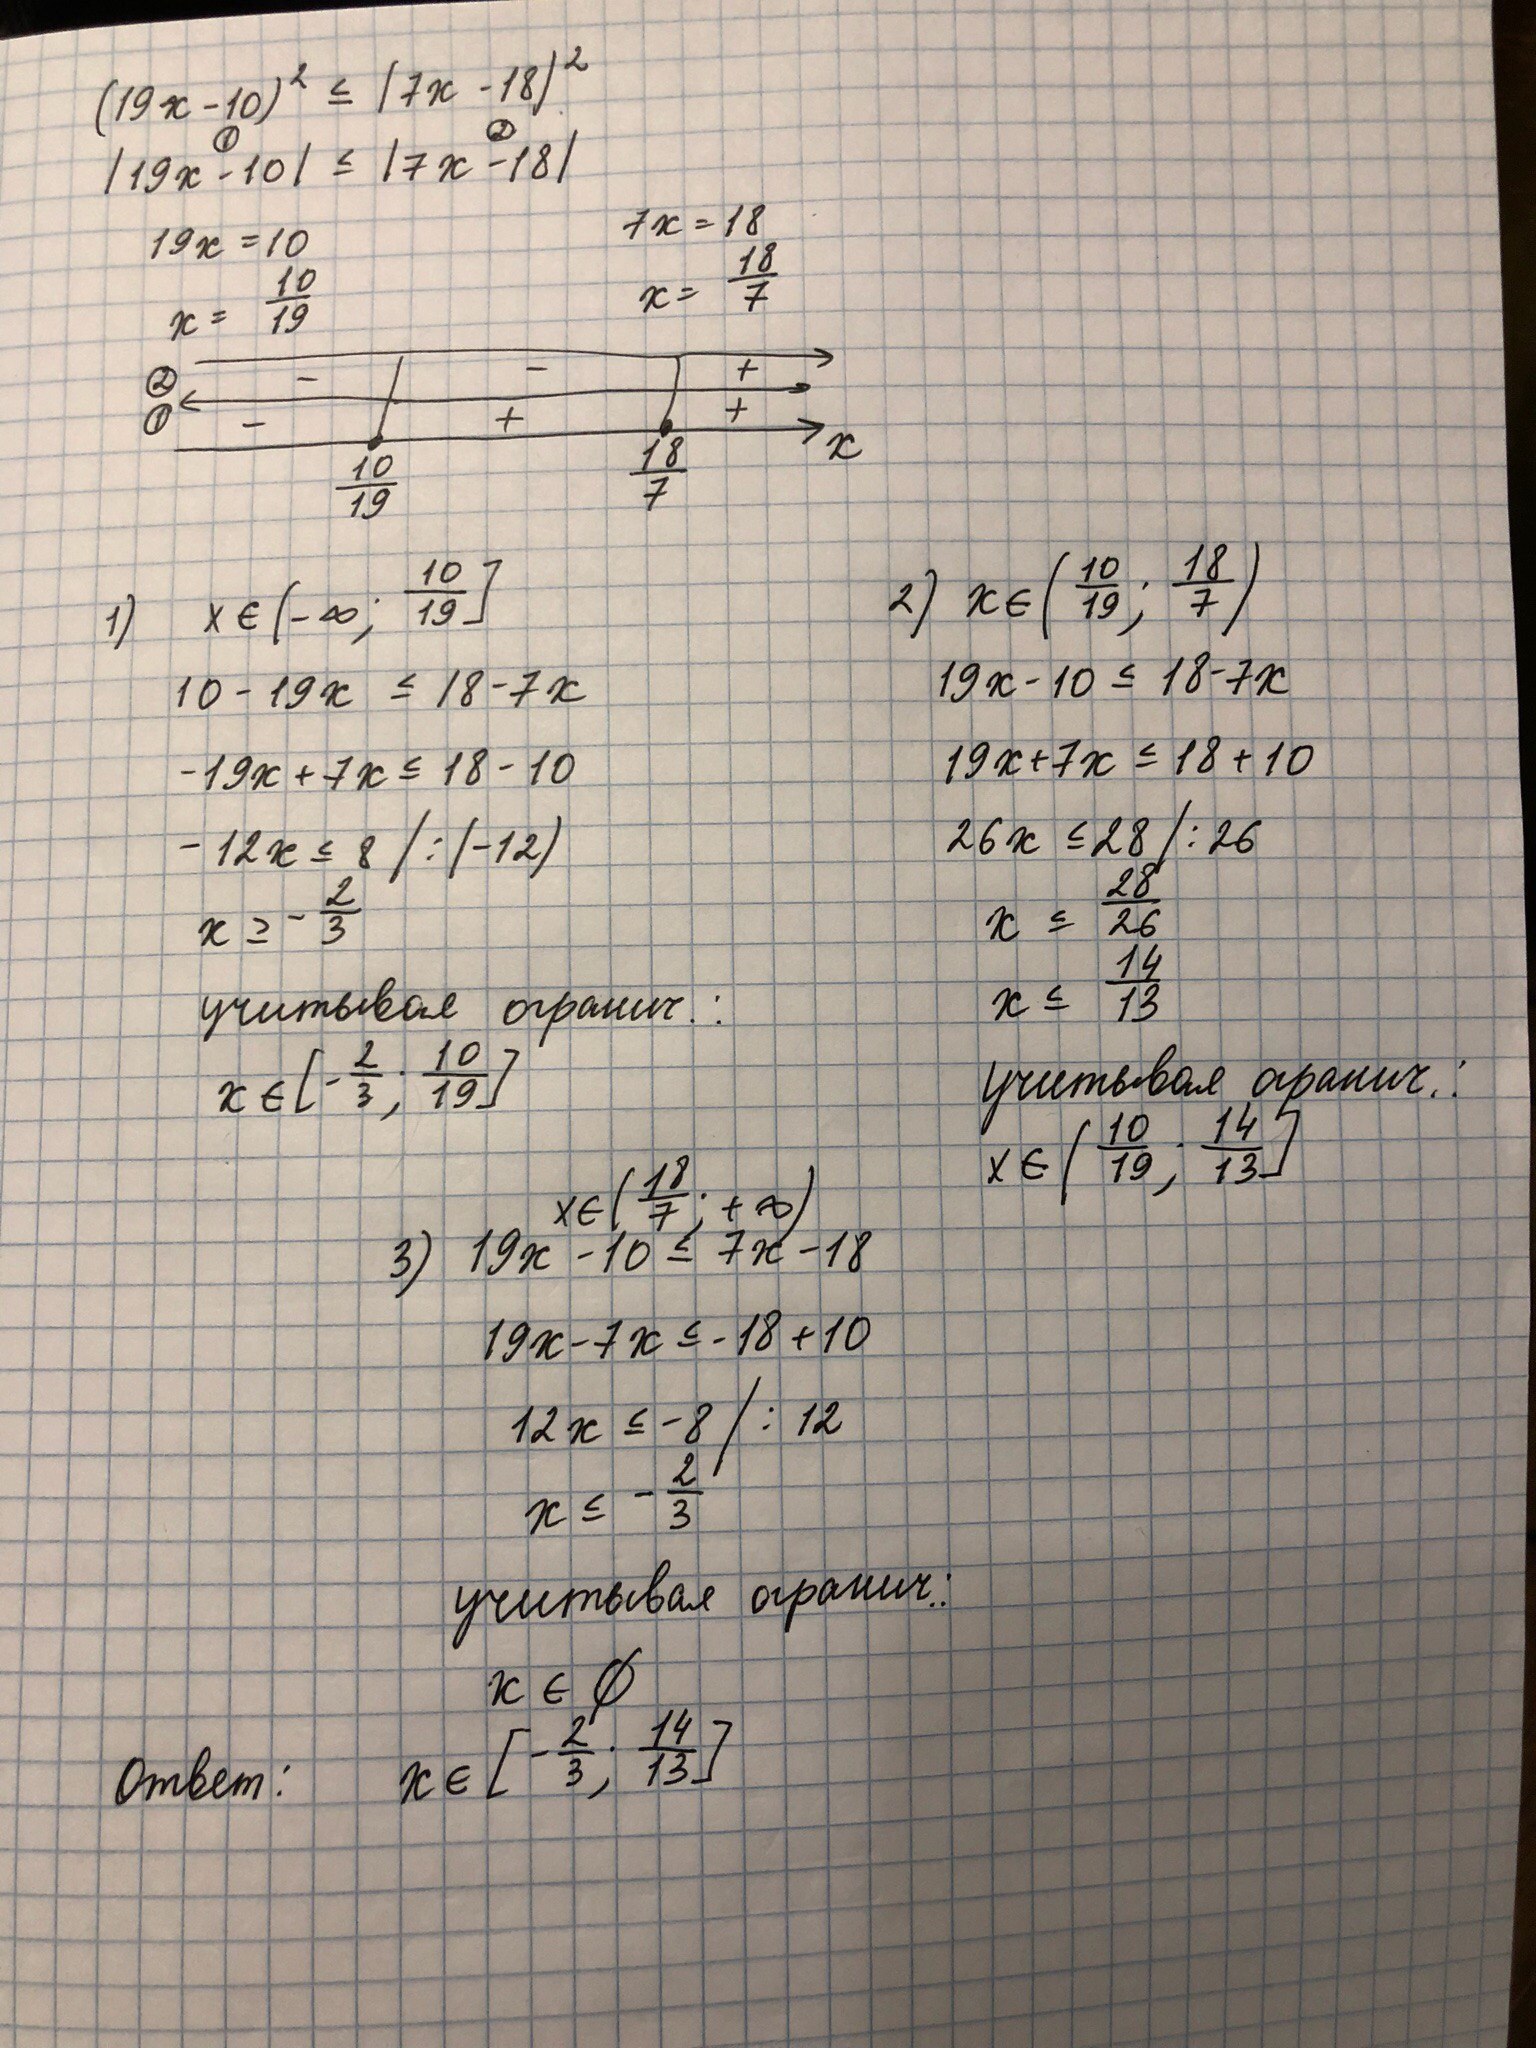 (19x-10)² ≤ |7x-18|²
① ②
|19x-10| ≤ |7x-18|
19x = 10 7x = 18
x = 10/19 x = 18/7
② - - +
① - + +
10/19 18/7 x
1) x∈(-∞; 10/19]
10-19x ≤ 18-7x
-19x+7x ≤ 18-10
-12x ≤ 8 /:(-12)
x ≥ -2/3
учитывая огранич.:
x∈[-2/3; 10/19]
2) x∈(10/19; 18/7)
19x-10 ≤ 18-7x
19x+7x ≤ 18+10
26x ≤ 28 /:26
x ≤ 28/26
x ≤ 14/13
учитывая огранич.:
x∈(10/19; 14/13]
x∈(18/7; +∞)
3) 19x-10 ≤ 7x-18
19x-7x ≤ -18+10
12x ≤ -8 /:12
x ≤ -2/3
учитывая огранич.:
x∈∅
Ответ: x∈[-2/3; 14/13]